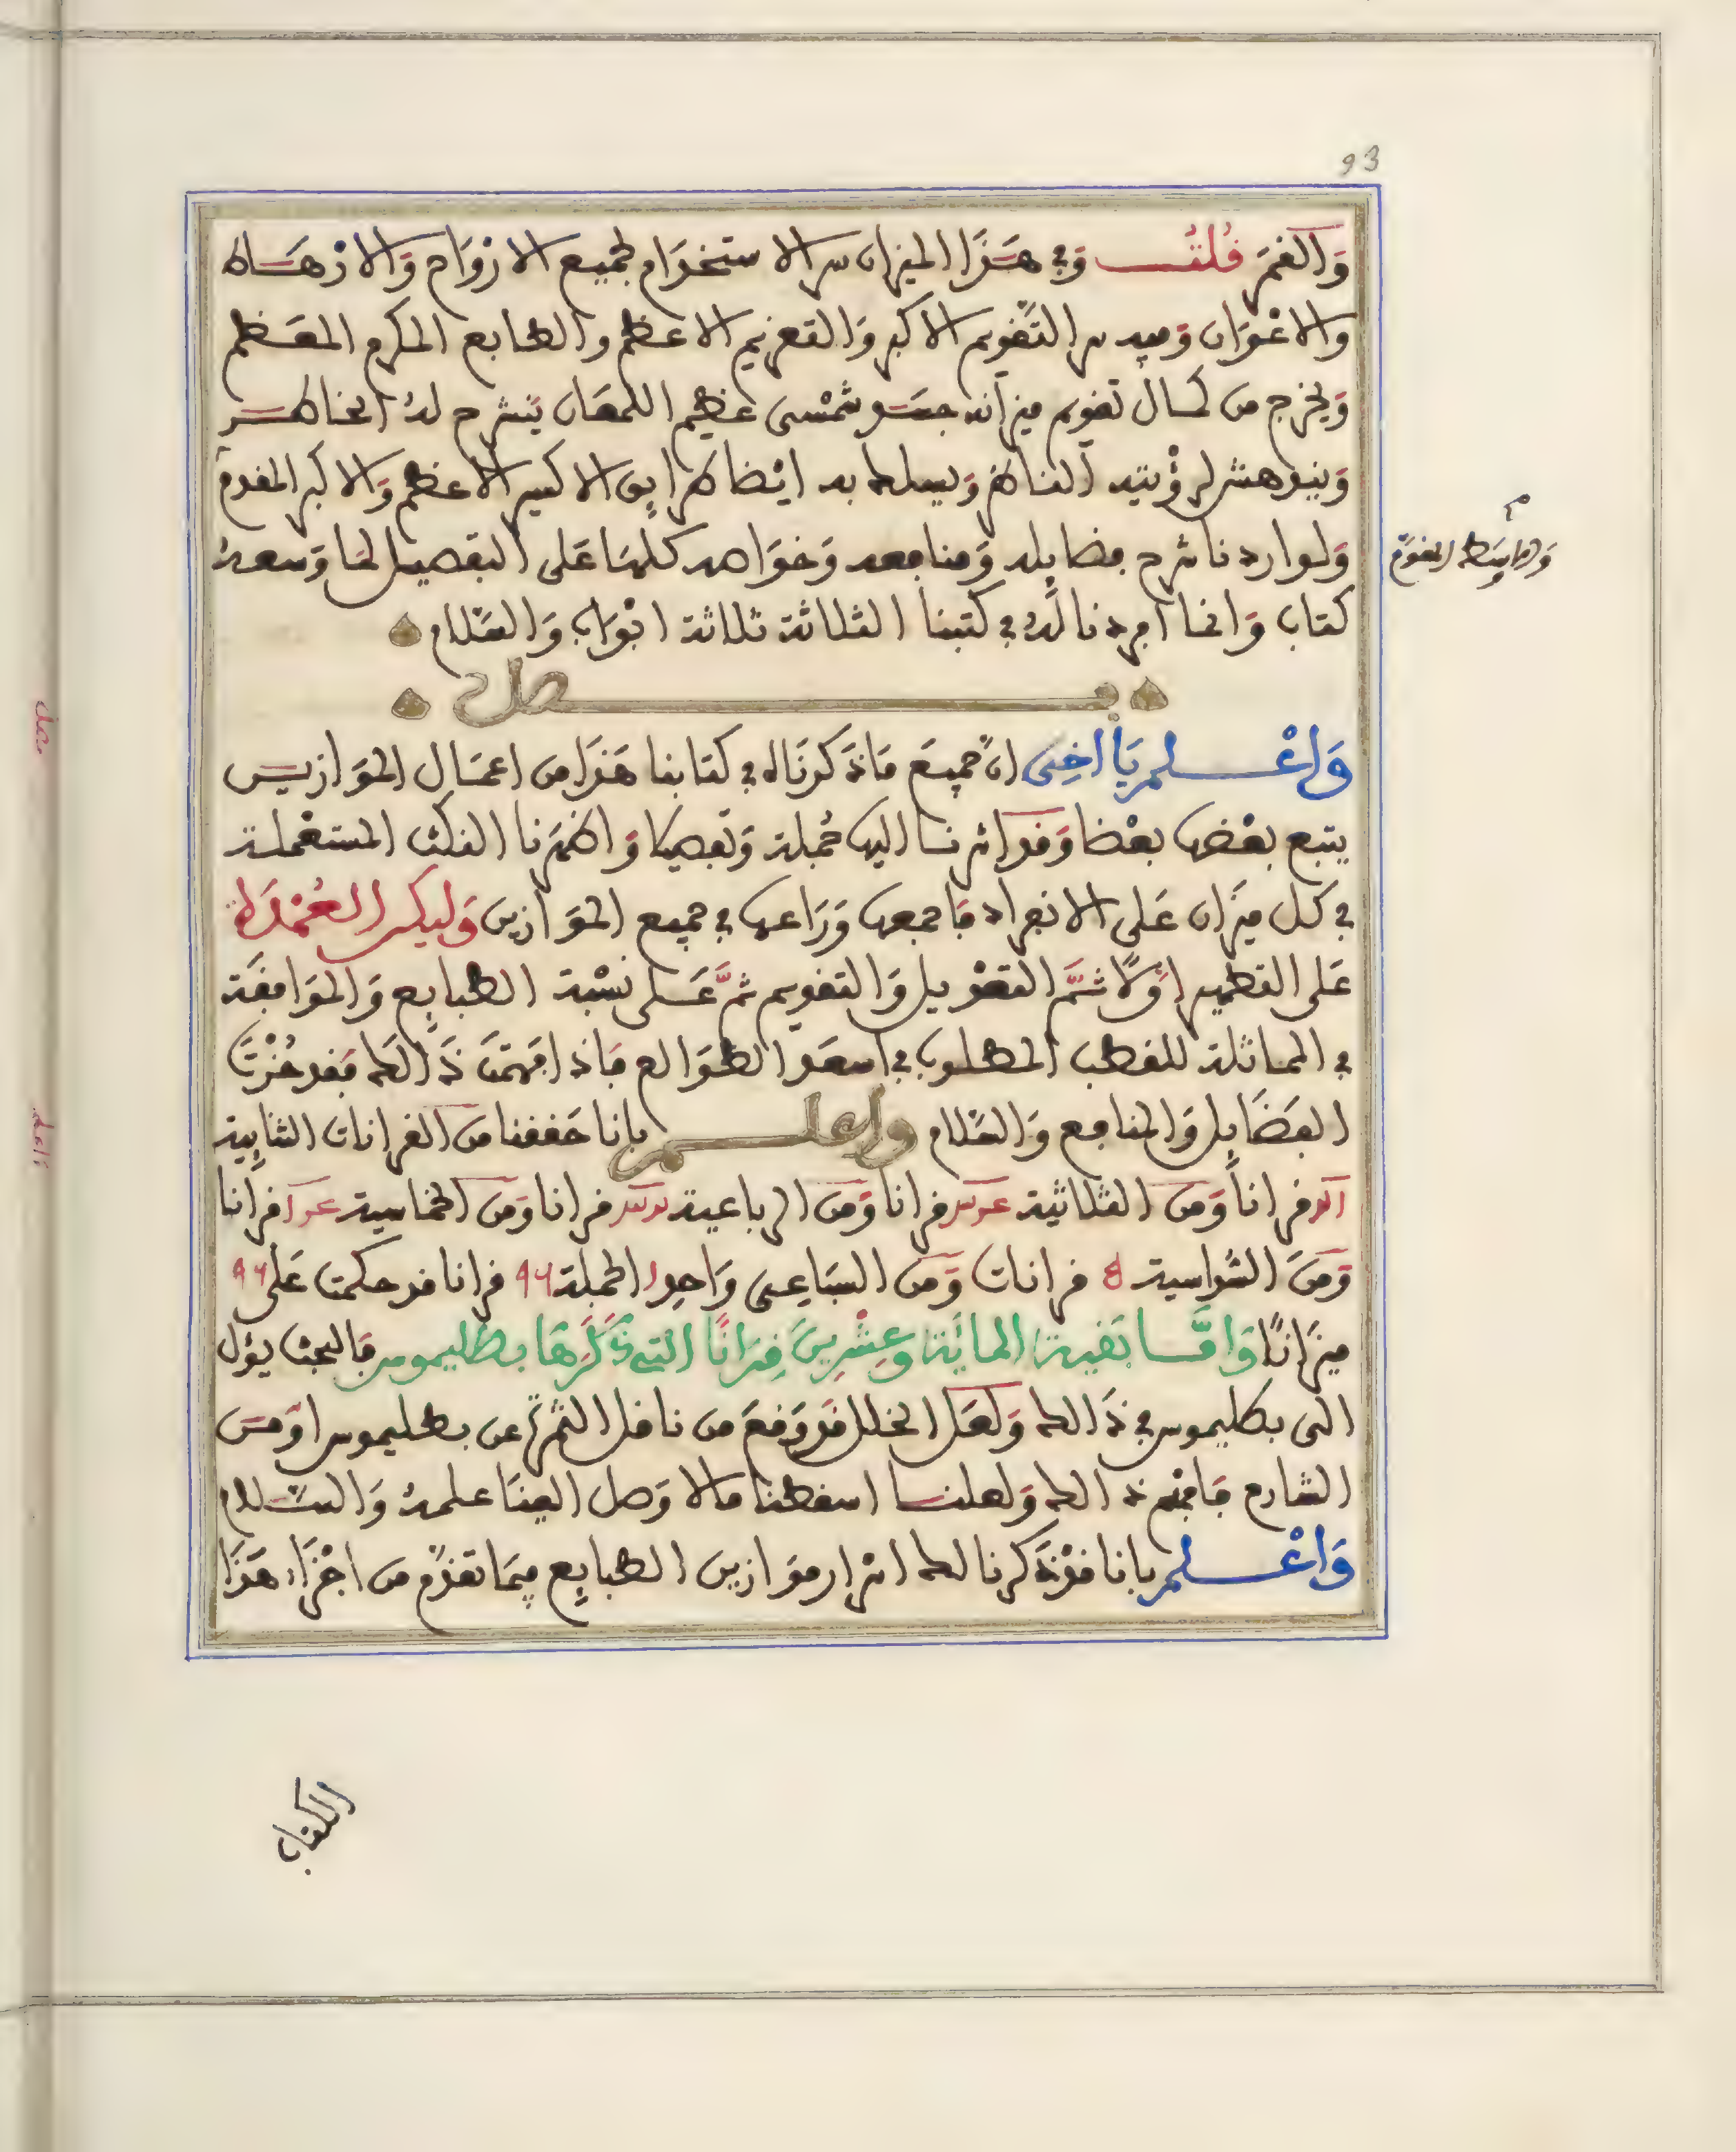 93
وَالقمَرِ قُلتُ وَفي هَذَا الميزان سر الاستخدَام لجميع الارْوَاح وَالارْهَاط
وَالاعْوَان وَفيه سر التَّقويم الاكبر وَالتعزيم الاعظم والطابع المكرم المعَظم
وَيخرج من كمال تقويم ميزانه جسَد شمْسي عظيم اللمعَان يَنشرح لهُ الخاطر
وَيندهش لرؤْيته الناظر وَيسلك به ايْضا طرايق الاكسير الاعظم وَالاكبر المقدم
وَلو اردنا شرح فضايله وَمنافعه وَخوَاصه كلهَا عَلى التفصيل لمَا وَسعهُ
كتاب وَانما افردنا لهُ في كتبنا الثلاثة ثلاثة ابْوَاب وَالسَّلام
فصل
وَاعْلم يَا اخِي انّ جميعَ مَا ذكرنَاه في كتابنا هَذَا من اعمَال الموَازيـن
يتبع بعْضها بعْضا وَقد اشرنا اليها جُملة وَتفصيلا وَاظهَرنا النكث المستعْملة
في كل ميزَان عَلى الانفراد فَاجمعها وَرَاعها في جميع الموَازين وَليكن العُمْدَة
عَلى التطهير اوَّلًا ثمَّ التحْويل وَالتقويم ثمَّ عَلى نسْبة الطبايع وَالموَافقَة
في المماثلة للقطب المطلوب في اسعَد الطوَالع فَاذا فهمْتَ ذَالك فَقد حُزْتَ
الفضَايل وَالمنافع وَالسَّلام وَاعلم بانا حَققنا من القرانات الثنايية
قراناً وَمن الثلاثية قرانا وَمن الرباعية قرانا وَمن الخماسية قرانا
وَمنَ السُّداسية قرانات وَمن السبَاعيى وَاحِد الجملة ٩٦ قرانا قد حكمت عَلى ٩٦
ميزَانًا وَامَّا بَقية المايَة وعِشْرِينَ قِرَانًا التي ذَكَرَهَا بطليموس فَالبحث يؤل
الى بطليموس في ذَالك وَلعَل الخلل قَد وَقعَ من ناقل الثمرة عن بطليموس اوْ من
الشارح فَافهْم ذَالك وَلعلنا اسقطنا مالا وَصل الينَا علمهُ وَالسَّلام
وَاعْلم بانا قدْ ذَكرنا لك اسْرار موَازين الطبايع فيمَا تقدَّم من اجْزَاء هَذَا
الكتاب